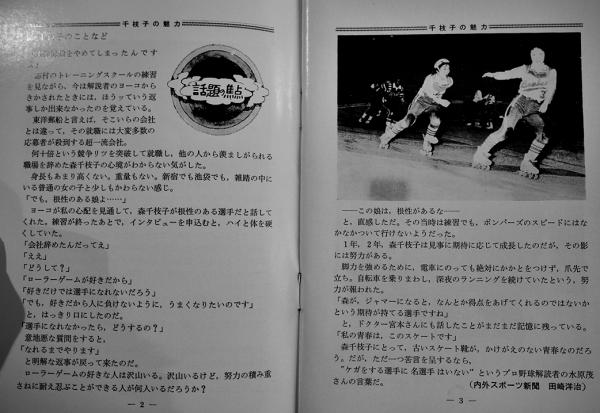 千枝子の魅力
子のことなど
をやめてしまったんです
よ」
志村のトレーニングスクールの練習
を見ながら、今は解説者のヨーコから
きかされたときには、ほうッていう返
事しか出来なかったのを覚えている。
東洋郵船と言えば、そこいらの会社
とは違って、その就職には大変多数の
応募者が殺到する超一流会社。
何十倍という競争リツを突破して就職し、他の人から羨ましがられる
職場を辞めた森千枝子の心境がわからない気がした。
身長もあまり高くない。重量もない。新宿でも池袋でも、雑踏の中に
いる普通の女の子と少しもかわらない感じ。
「でも、根性のある娘よ……」
ヨーコが私の心配を見通して、森千枝子が根性のある選手だと話して
くれた。練習が終ったあとで、インタビューを申込むと、ハイと体を硬
くしていた。
「会社辞めたんだってえ」
「ええ」
「どうして?」
「ローラーゲームが好きだから」
「好きだけでは選手になれないだろう」
「でも、好きだから人に負けないように、うまくなりたいのです」
と、はっきり口にしたのだ。
「選手になれなかったら、どうするの?」
意地悪な質問をすると、
「なれるまでやります」
と明解な返事が戻って来たのだ。
ローラーゲームの好きな人は沢山いる。沢山いるけど、努力の積み重
さねに耐え忍ぶことができる人が何人いるだろうか?
― 2 ―
話題の焦点
千枝子の魅力
――この娘は、根性があるな――
と、直感しただ。その当時は練習でも、ボンバーズのスピードにはな
かなかついて行けないようだった。
1年、2年、森千枝子は見事に期待に応じて成長したのだが、その影
には努力がある。
脚力を強めるために、電車にのっても絶対にかかとをつけず、爪先で
立ち。自転車を乗りまわし、深夜のランニングを続けていたという、努
力が報われた。
「森が、ジャマーになると、なんとか得点をあげてくれるのではないか
という期待が持てる選手ですね」
と、ドクター宮本さんにも話したことがまだまだ記憶に残っている。
「私の青春は、このスケートです」
森千枝子にとって、古いスケート靴が、かけがえのない青春なのだろ
う。だが、ただ一つ苦言を呈するなら、
"ケガをする選手に 名選手 はいない" というプロ野球解説者の水原茂
さんの言葉だ。
(内外スポーツ新聞 田崎洋治)
― 3 ―